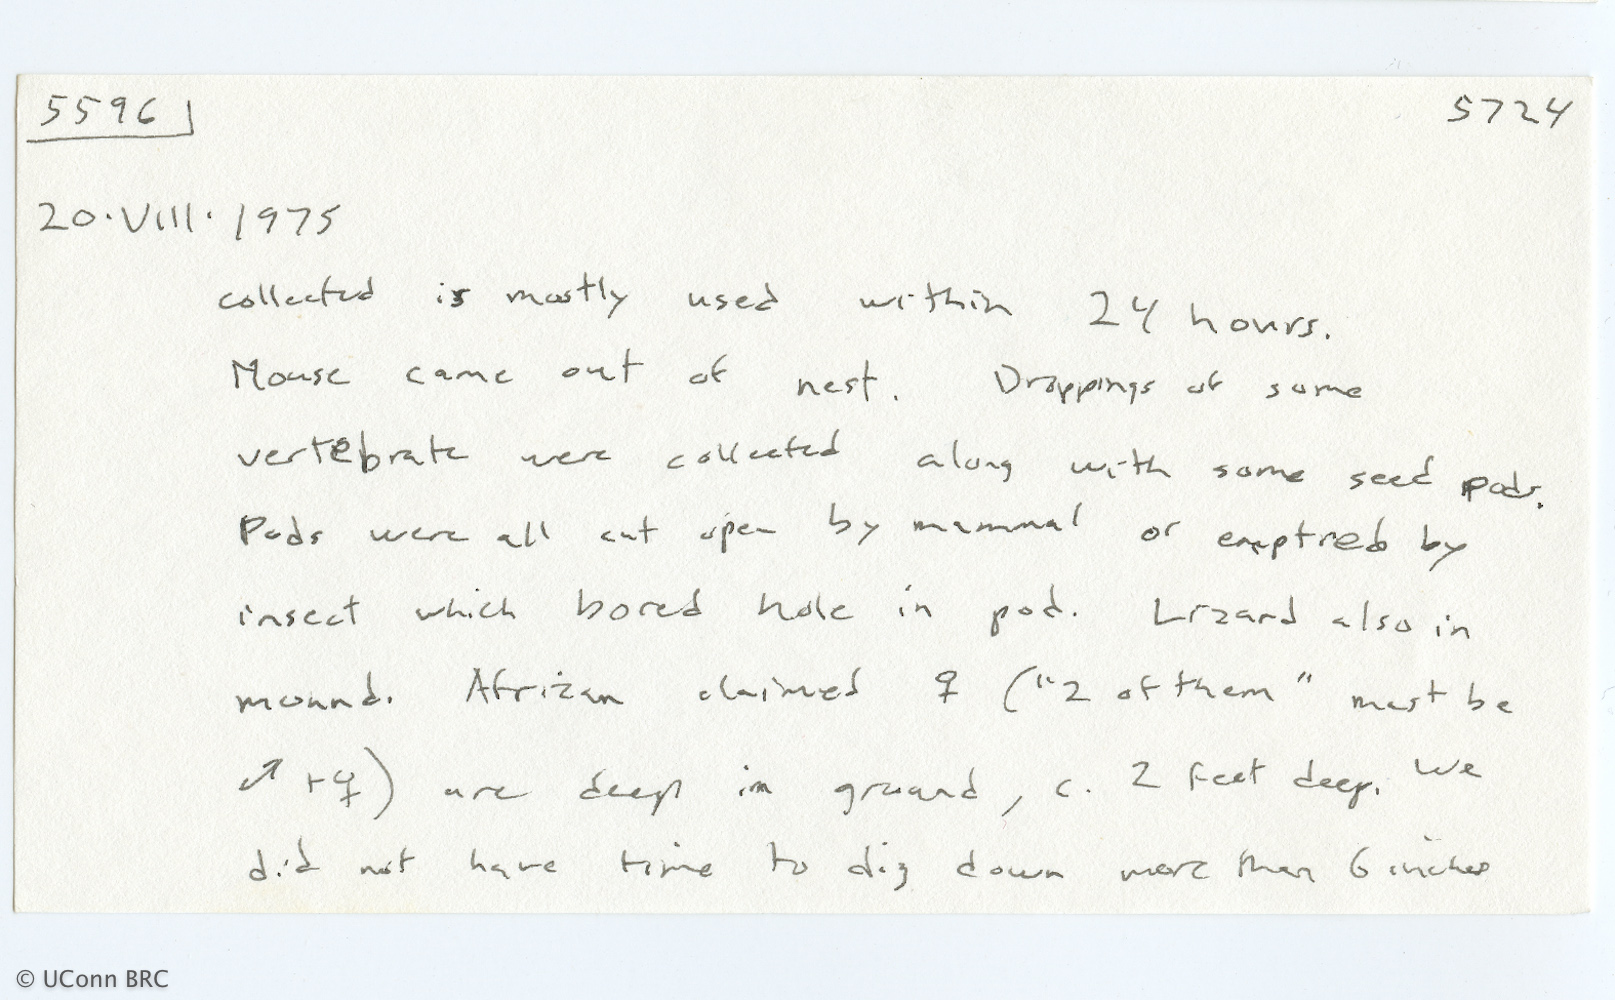 5596 5724
20.VIII.1975
collected is mostly used within 24 hours.
Mouse came out of nest. Droppings of some
vertebrate were collected along with some seed pods.
Pods were all cut open by mammal or emptied by
insect which bored hole in pod. Lizard also in
mound. African claimed ♀ ("2 of them" must be
♂ + ♀) are deep in ground, c. 2 feet deep. We
did not have time to dig down more than 6 inches
© UConn BRC